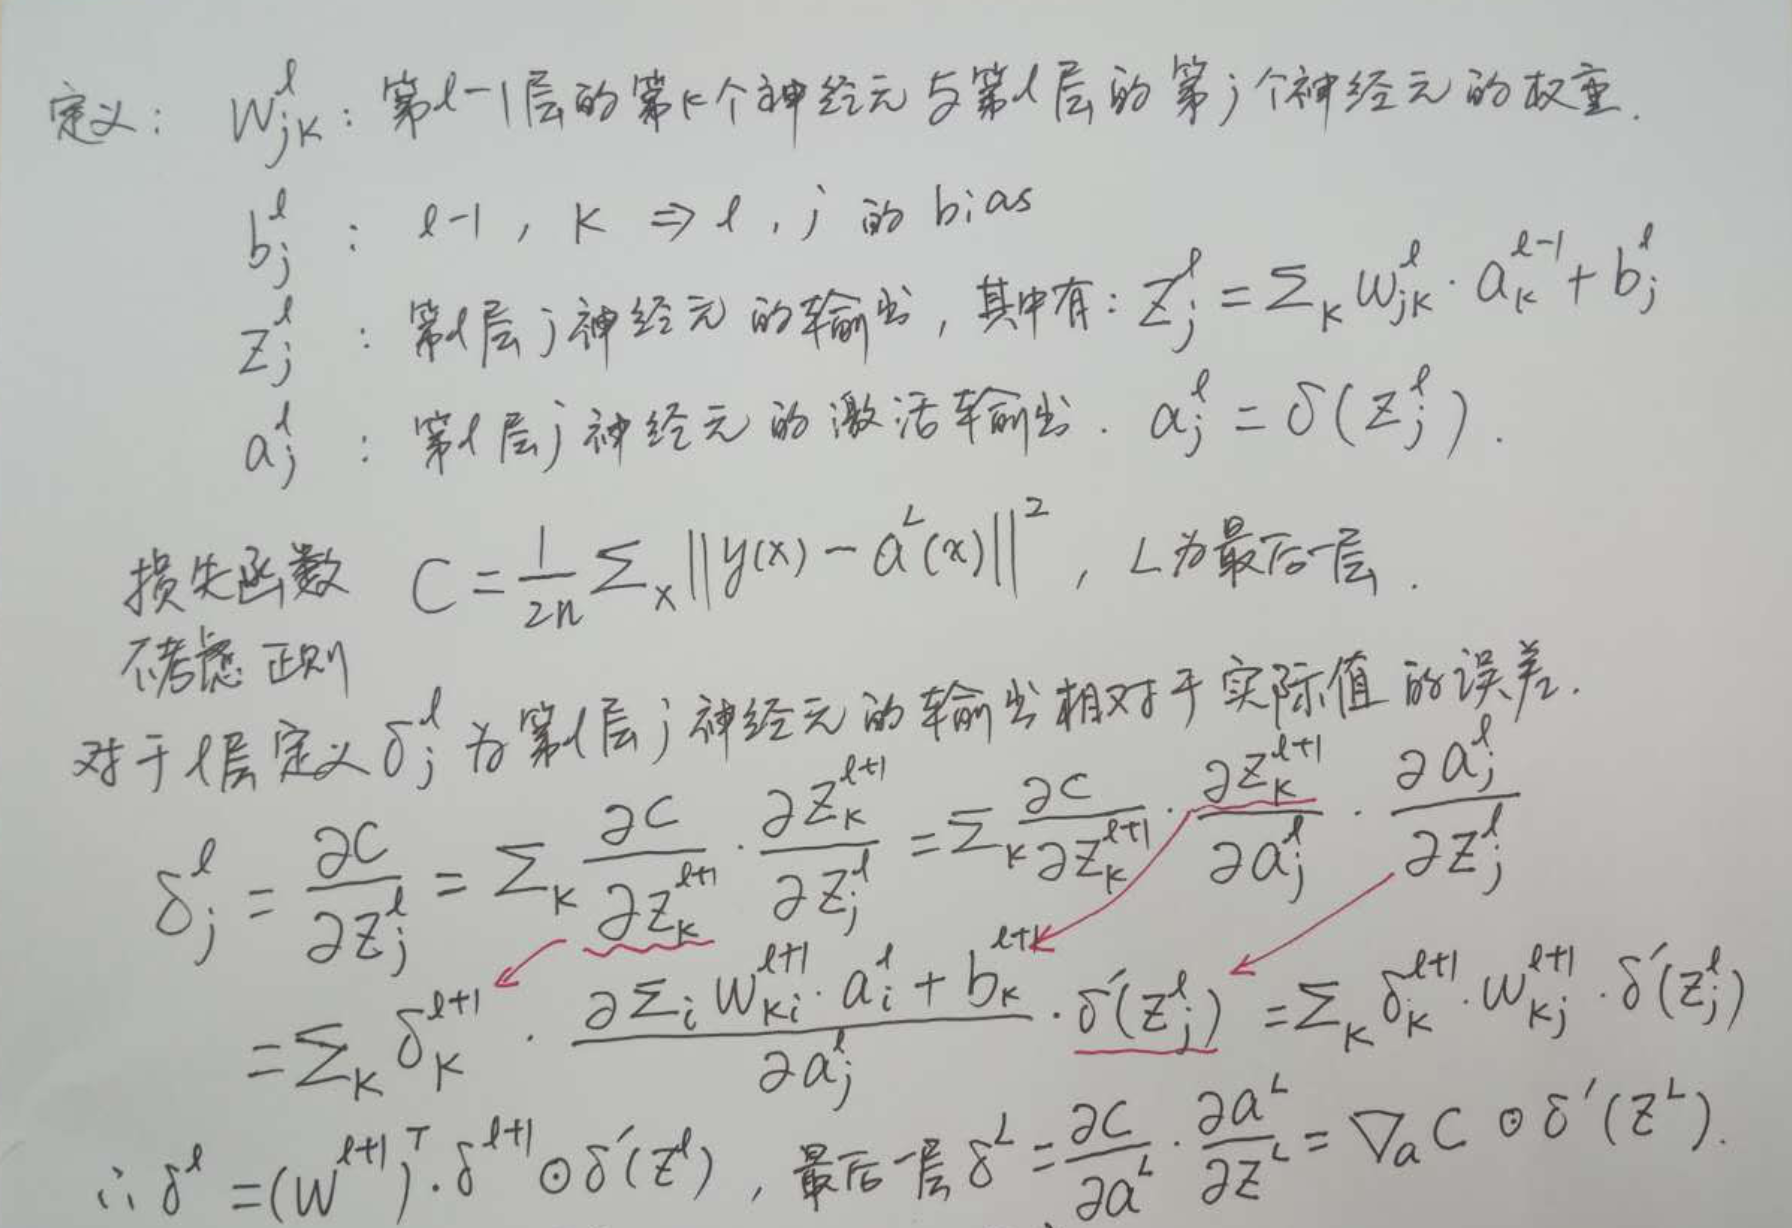 定义: w_{jk}^l : 第l-1层的第k个神经元与第l层的第j个神经元的权重.
b_j^l : l-1, k ⇒ l, j 的 bias
z_j^l : 第l层j神经元的输出, 其中有: z_j^l = Σ_k w_{jk}^l · a_k^{l-1} + b_j^l
a_j^l : 第l层j神经元的激活输出. a_j^l = δ(z_j^l).
损失函数 C = \frac{1}{2n} Σ_x ||y(x) - a^L(x)||^2, L为最后一层.
不考虑正则
对于l层定义 δ_j^l 为第l层j神经元的输出相对于实际值的误差.
δ_j^l = \frac{∂C}{∂z_j^l} = Σ_k \frac{∂C}{∂z_k^{l+1}} · \frac{∂z_k^{l+1}}{∂z_j^l} = Σ_k \frac{∂C}{∂z_k^{l+1}} · \frac{∂z_k^{l+1}}{∂a_j^l} · \frac{∂a_j^l}{∂z_j^l}
= Σ_k δ_k^{l+1} · \frac{∂Σ_i w_{ki}^{l+1} · a_i^l + b_k^{l+1}}{∂a_j^l} · δ'(z_j^l) = Σ_k δ_k^{l+1} · w_{kj}^{l+1} · δ'(z_j^l)
∴ δ^l = (w^{l+1})^T · δ^{l+1} ⊙ δ'(z^l), 最后一层 δ^L = \frac{∂C}{∂a^L} · \frac{∂a^L}{∂z^L} = ∇_a C ⊙ δ'(z^L).